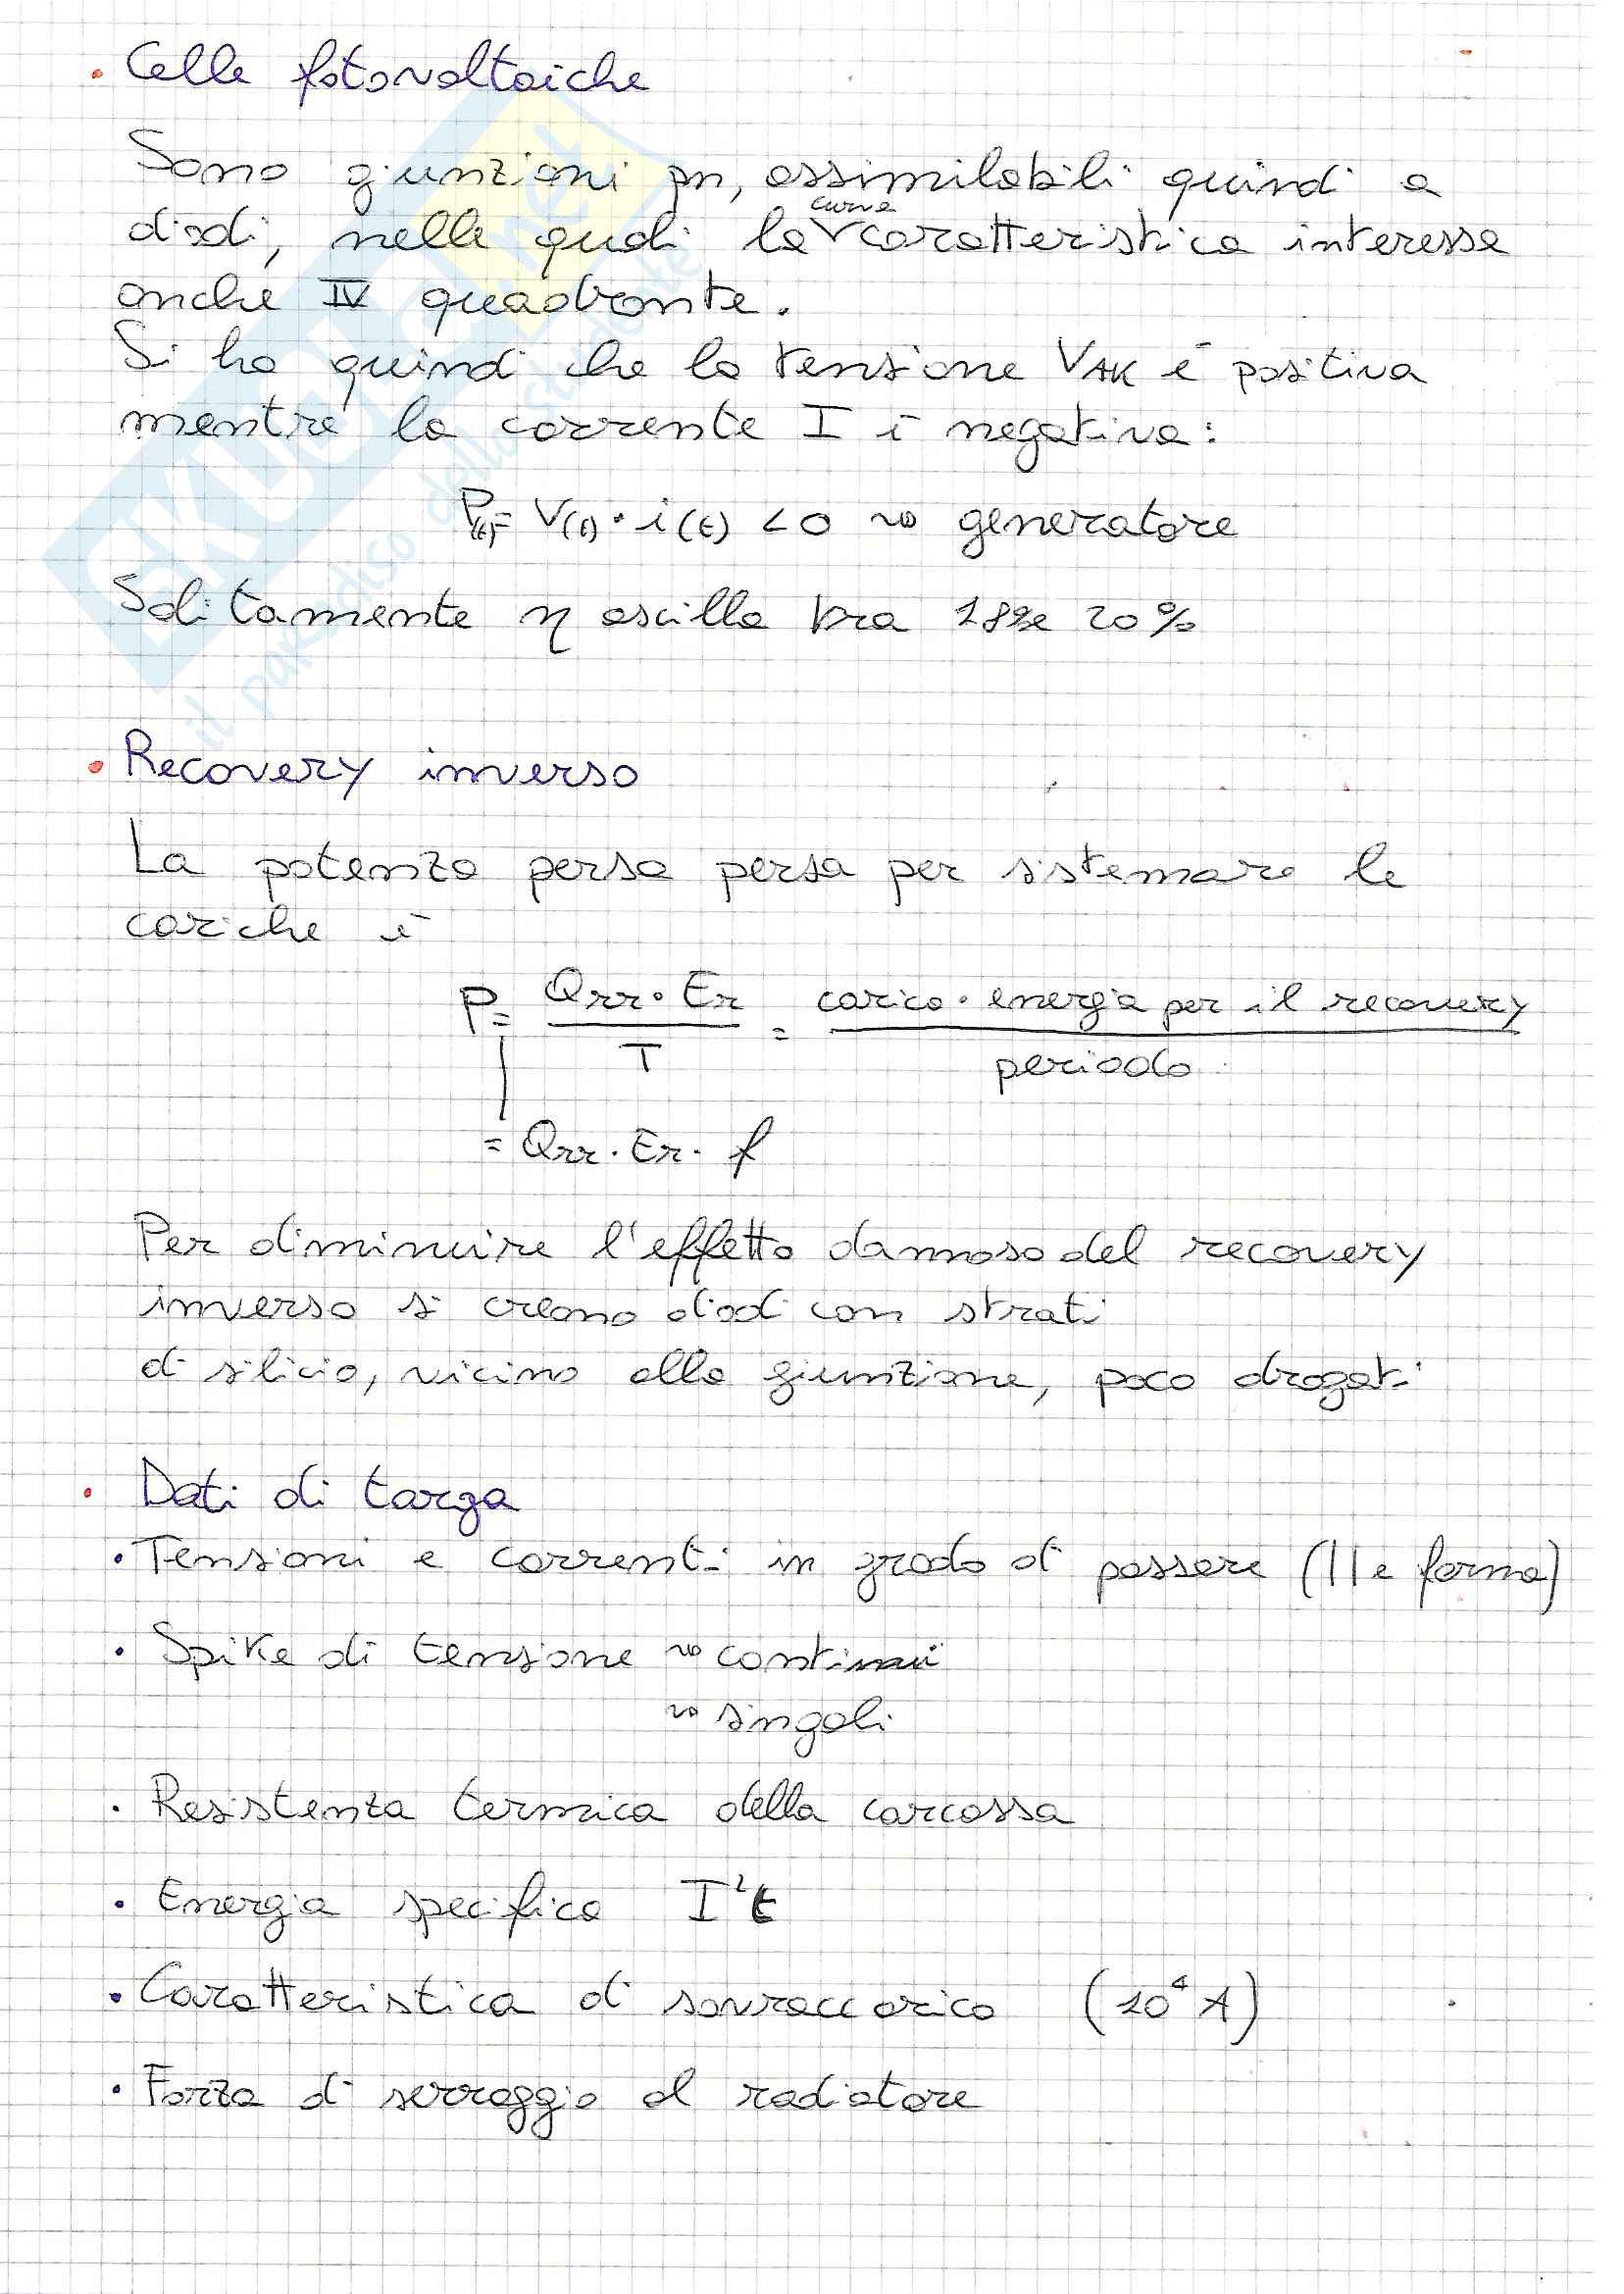 • Celle fotovoltaiche
Sono giunzioni pn, assimilabili quindi a
curva
diodi, nelle quali la √ caratteristica interessa
anche IV quadrante.
Si ha quindi che la tensione VAK è positiva
mentre la corrente I è negativa:
P(t)= V(t) · i(t) < 0 ⇝ generatore
Solitamente η oscilla tra 18% e 20%
• Recovery inverso
La potenza persa persa per sistemare le
cariche è
P = Qrr · Er / T = carica · energia per il recovery / periodo
= Qrr · Er · f
Per diminuire l'effetto dannoso del recovery
inverso si creano diodi con strati
di silicio, vicino alla giunzione, poco drogati
• Dati di targa
• Tensioni e correnti in grado di passare (| | e forma)
• Spike di tensione ⇝ continui
⇝ singoli
• Resistenza termica della carcassa
• Energia specifica I²t
• Caratteristica di sovraccarico (10⁴ A)
• Forza di serraggio al radiatore
SKUOLA.net
il paradiso dello studente